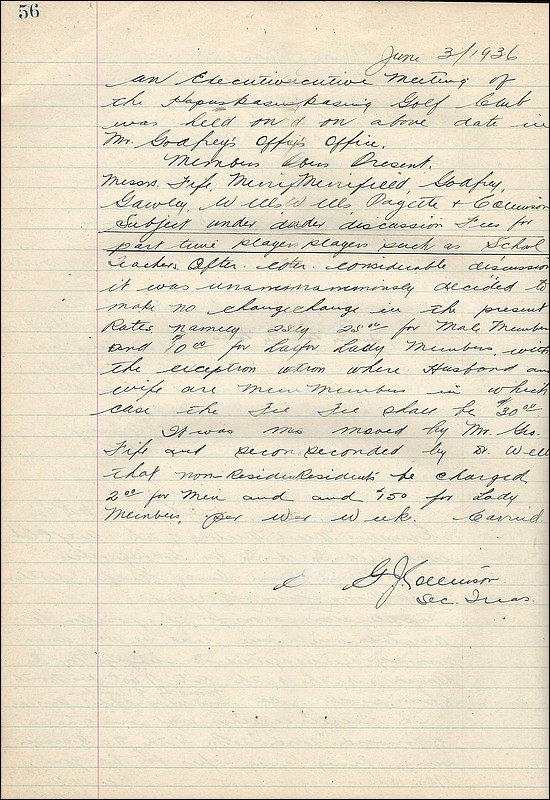 56
June 3/1936
an Executivecutive Meeting of
the Kapuskasingkasing Golf Club
was held on d on above date in
Mr. Godfrey's Offys Office.
Members Present.
Messrs. Fife, Merrifield, Godfrey,
Gawley, Wells Wells Payette & Collinson
Subject under under discussion Fees for
part time players players such as School
Teachers. After considerable discussion
it was unanimously decided to
make no changechange in the present
Rates namely 25ly 25.00 for Male Members
and $10.00 for Lady Members, with
the exception where Husband and
wife are Mem Members in which
case the Fee Fee shall be $30.00
It was mo moved by Mr. Geo.
Fife and seconseconded by Dr. Wells
that non-ResidenResidents be charged
2.00 for Men and and $1.50 for Lady
Members, per Week. Carried
G. J. Collinson
Sec. Treas.